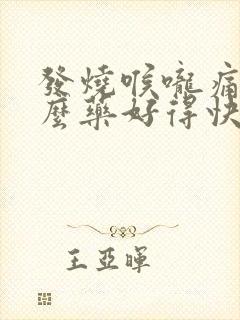 發燒喉嚨痛
麼藥好得快
王亞暉